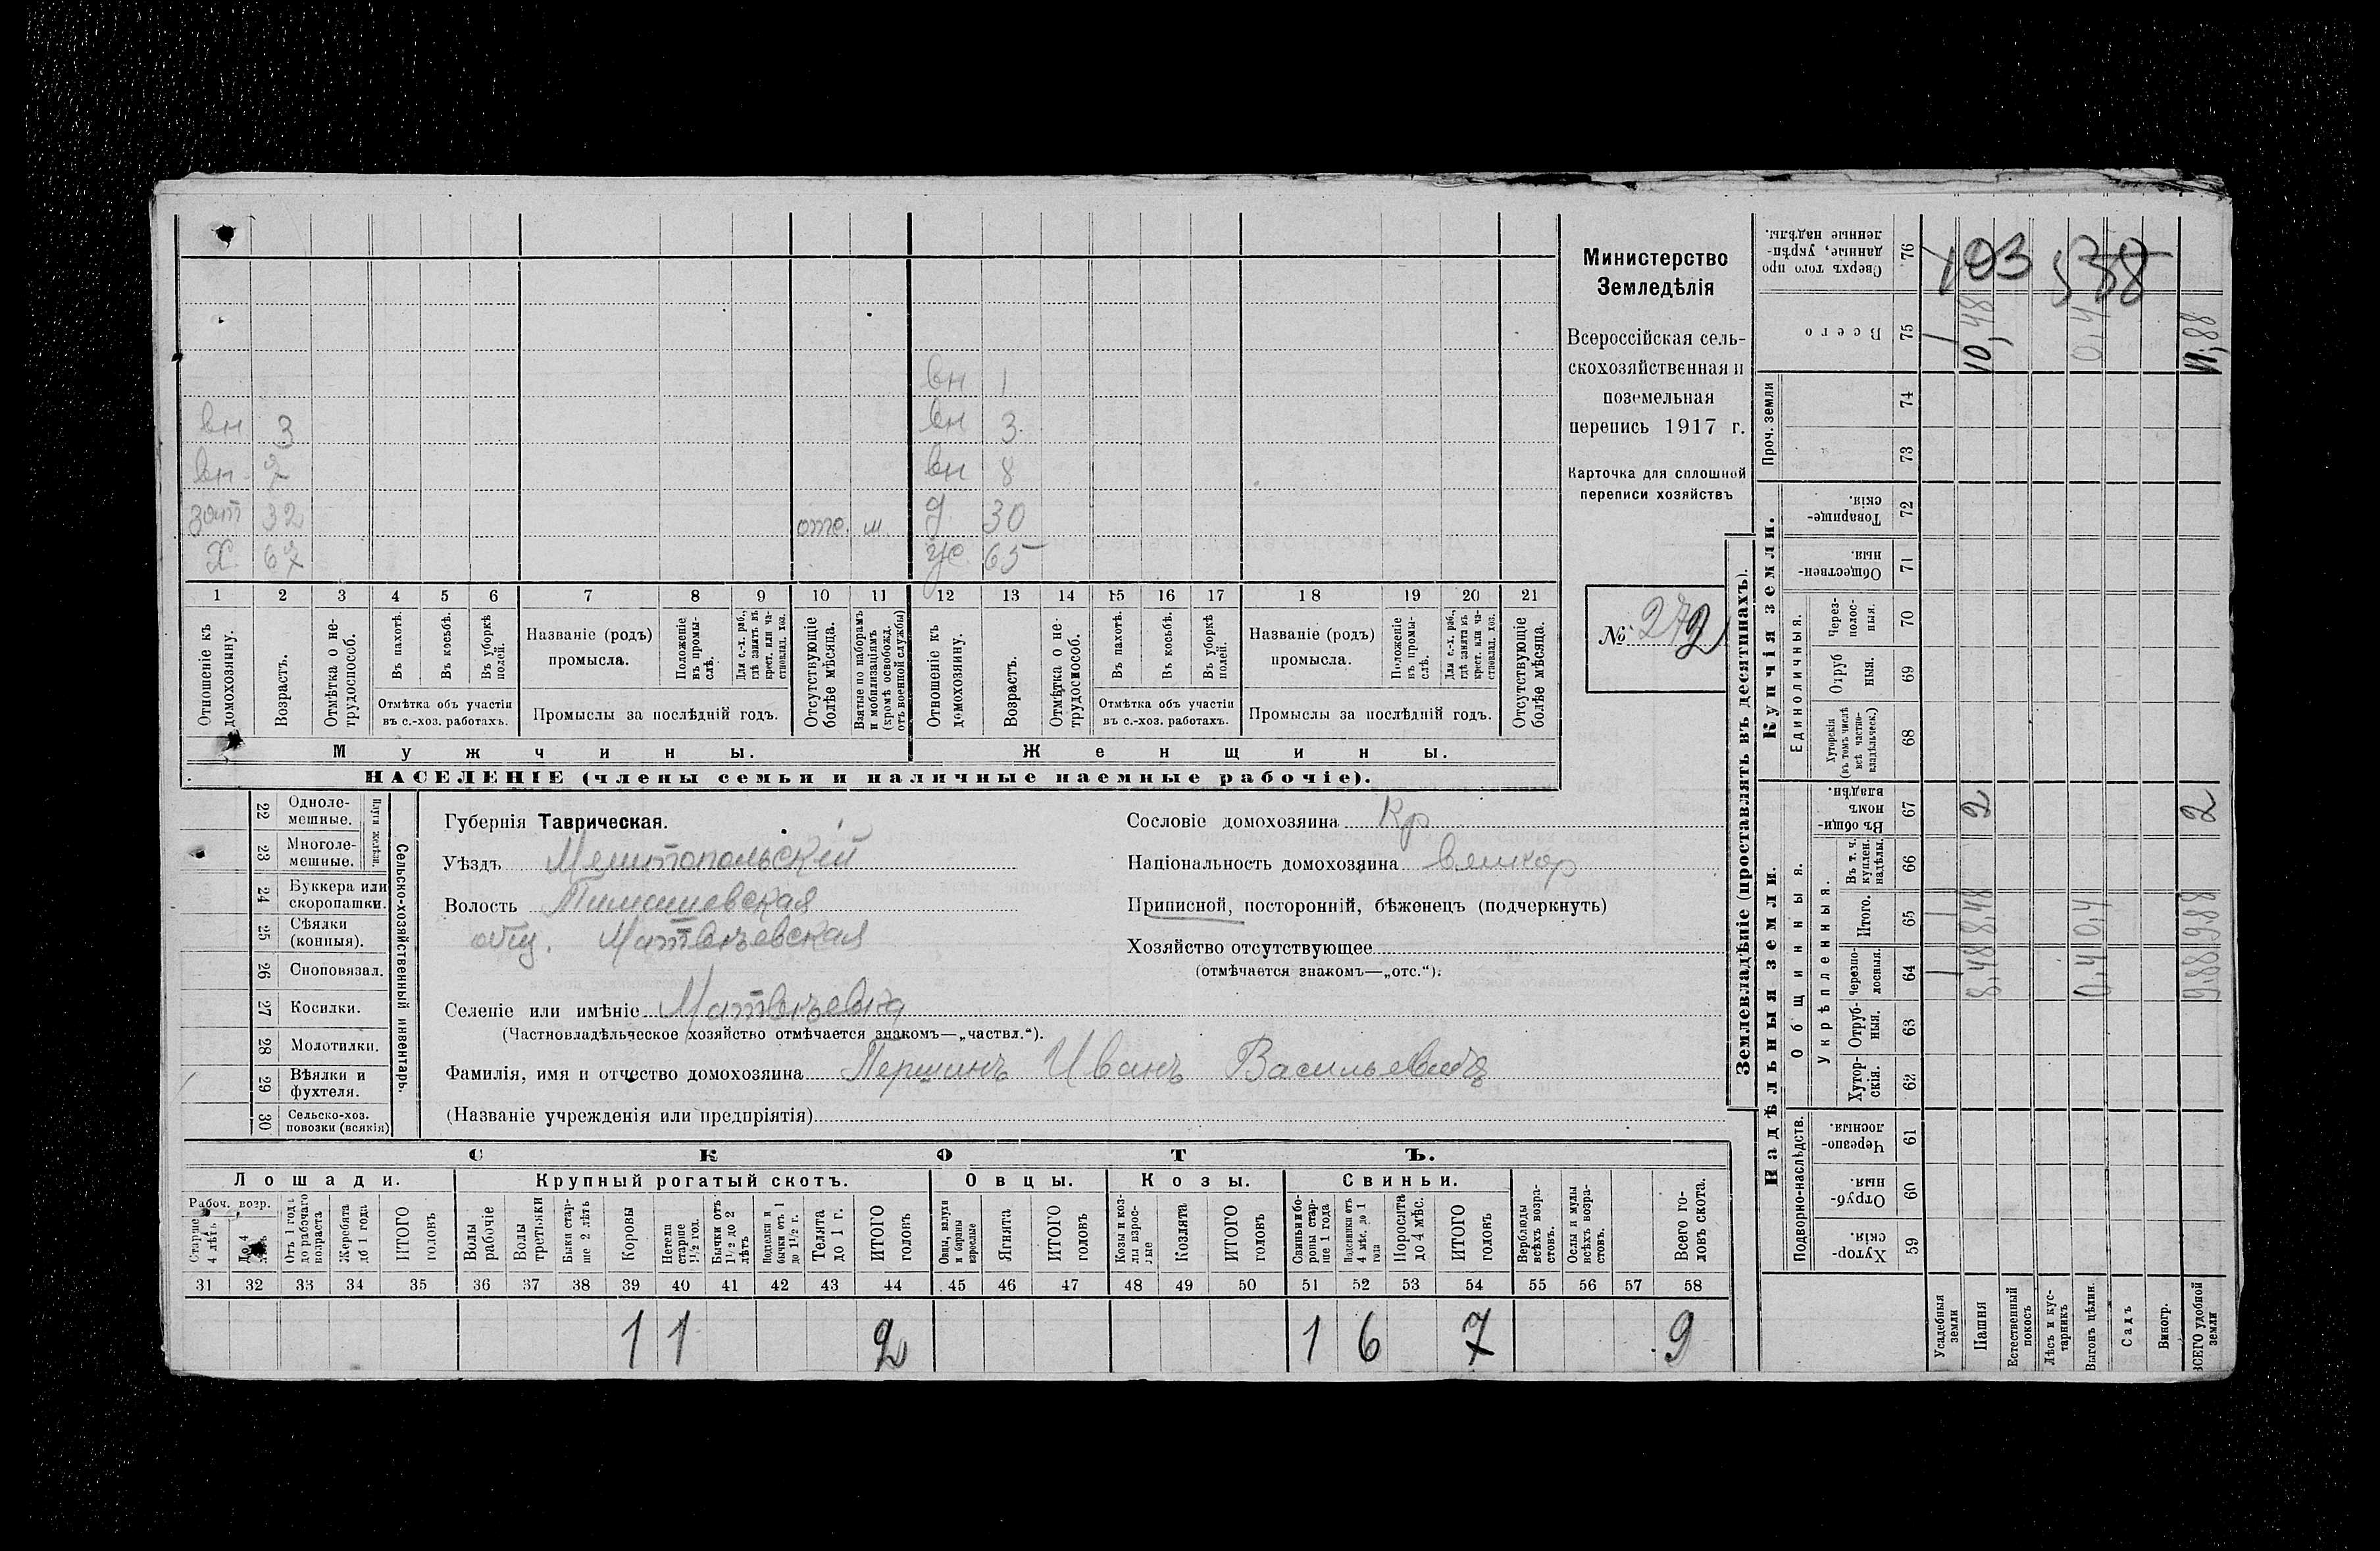 вн 1
вн 3 вн 3
вн 7 вн 8
зят 32 отс. м. д 30
Х 67 ж 65
1 2 3 4 5 6 7 8 9 10 11 12 13 14 15 16 17 18 19 20 21
Отношеніе къ домохозяину.
Возрастъ.
Отмѣтка о нетрудоспособ.
Въ пахотѣ.
Въ косьбѣ.
Въ уборкѣ полей.
Отмѣтка объ участіи въ с.-хоз. работахъ.
Названіе (родъ) промысла.
Положеніе въ промыслѣ.
Для с.-х. раб., гдѣ занятъ въ крест. или частновлад. хоз.
Промыслы за послѣдній годъ.
Отсутствующіе болѣе мѣсяца.
Взятые по наборамъ и мобилизаціямъ (кромѣ освобожд. отъ военной службы)
Отношеніе къ домохозяину.
Возрастъ.
Отмѣтка о нетрудоспособ.
Въ пахотѣ.
Въ косьбѣ.
Въ уборкѣ полей.
Отмѣтка объ участіи въ с.-хоз. работахъ.
Названіе (родъ) промысла.
Положеніе въ промыслѣ.
Для с.-х. раб., гдѣ занята въ крест. или частновлад. хоз.
Промыслы за послѣдній годъ.
Отсутствующіе болѣе мѣсяца.
Мужчины. Женщины.
НАСЕЛЕНІЕ (члены семьи и наличные наемные рабочіе).
Министерство
Земледѣлія
Всероссійская сель-
скохозяйственная и
поземельная
перепись 1917 г.
Карточка для сплошной
переписи хозяйствъ
№ 272
22 Одноле-
мешные.
23 Многоле-
мешные.
24 Буккера или
скоропашки.
25 Сѣялки
(конныя).
26 Сноповязал.
27 Косилки.
28 Молотилки.
29 Вѣялки и
фухтеля.
30 Сельско-хоз.
повозки (всякія)
Сельско-хозяйственный инвентарь.
Губернія Таврическая.
Уѣздъ Мелитопольскій
Волость Тимошевская
общ. Матвѣевская
Селеніе или имѣніе Матвѣевка
(Частновладѣльческое хозяйство отмѣчается знакомъ—„частвл.“).
Фамилія, имя и отчество домохозяина Першинъ Иванъ Васильевичъ
(Названіе учрежденія или предпріятія)
Сословіе домохозяина Кр
Національность домохозяина великор
Приписной, посторонній, бѣженецъ (подчеркнуть)
Хозяйство отсутствующее
(отмѣчается знакомъ—„отс.“).
СКОТЪ.
Лошади. Крупный рогатый скотъ. Овцы. Козы. Свиньи.
Рабоч. возр.
Старше 4 лѣтъ
До 4 лѣтъ
Отъ 1 года до рабочаго возраста
Жеребята до 1 года
ИТОГО головъ
Волы рабочіе
Волы третьяки
Быки старше 2 лѣтъ
Коровы
Нетели старше 1½ год.
Бычки отъ 1½ до 2 лѣтъ
Подтелки и бычки отъ 1 до 1½ г.
Телята до 1 г.
ИТОГО головъ
Овцы, валухи и бараны взрослые
Ягнята
ИТОГО головъ
Козы и козлы взрослые
Козлята
ИТОГО головъ
Свиньи и боровы старше 1 года
Подсвинки отъ 4 мѣс. до 1 года
Поросята до 4 мѣс.
ИТОГО головъ
Верблюды всѣхъ возрастовъ.
Ослы и мулы всѣхъ возрастовъ.
Всего головъ скота.
31 32 33 34 35 36 37 38 39 40 41 42 43 44 45 46 47 48 49 50 51 52 53 54 55 56 57 58
1 1 2 1 6 7 9
Землевладѣніе (проставлять въ десятинахъ).
Надѣльныя земли. Купчія земли. Проч. земли
Подворно-наслѣдств.
Общинныя.
Укрѣпленныя.
Единоличныя.
59 Хуторскія.
60 Отрубныя.
61 Черезполосныя.
62 Хуторскія.
63 Отрубныя.
64 Черезполосныя.
65 Итого.
66 Въ т. ч. куплен. надѣлы.
67 Въ общинномъ владѣн.
68 Хуторскія (въ томъ числѣ всѣ частновладѣльческ.)
69 Отрубныя.
70 Черезполосныя.
71 Общественныя.
72 Товарищескія.
73
74
75 Всего
76 Сверхъ того проданные, укрѣпленные надѣлы.
Усадебныя земли 1 1 1
Пашня 8,48 8,48 2 10,48
Естественный покосъ
Лѣсъ и кустарникъ
Выгонъ цѣлин. 0,4 0,4 0,4
Садъ
Виногр.
ВСЕГО удобной земли 9.88 9.88 2 11,88
103 538